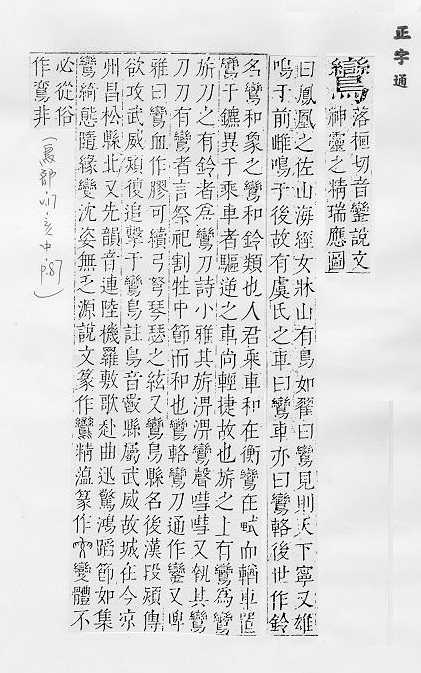 正字通
鸞 落桓切音鑾說文
神靈之精瑞應圖
曰鳳凰之佐山海經女牀山有鳥如翟曰鸞見則天下寧又雄
鳴于前雌鳴于後故有虞氏之車曰鸞車亦曰鸞輅後世作鈴
名鸞和象之鸞和鈴類也人君乘車和在衡鸞在軾而輶車置
鸞于鑣異于乘車者驅逆之車尚輕捷故也旂之上有鸞為鸞
旂刀之有鈴者為鸞刀詩小雅其旂淠淠鸞聲嘒嘒又執其鸞
刀刀有鸞者言祭祀割牲中節而和也鸞輅鸞刀通作鑾又埤
雅曰鸞血作膠可續弓弩琴瑟之絃又鸞鳥縣名後漢段熲傳
欲攻武威熲復追擊于鸞鳥註鳥音爵縣屬武威故城在今涼
州昌松縣北又先韻音連陸機羅敷歌赴曲迅驚鴻蹈節如集
鸞綺態隨緣變沈姿無乏源說文篆作鸞精薀篆作變體不
必從俗
作鵉非
(鳥部 亥中 p.87)